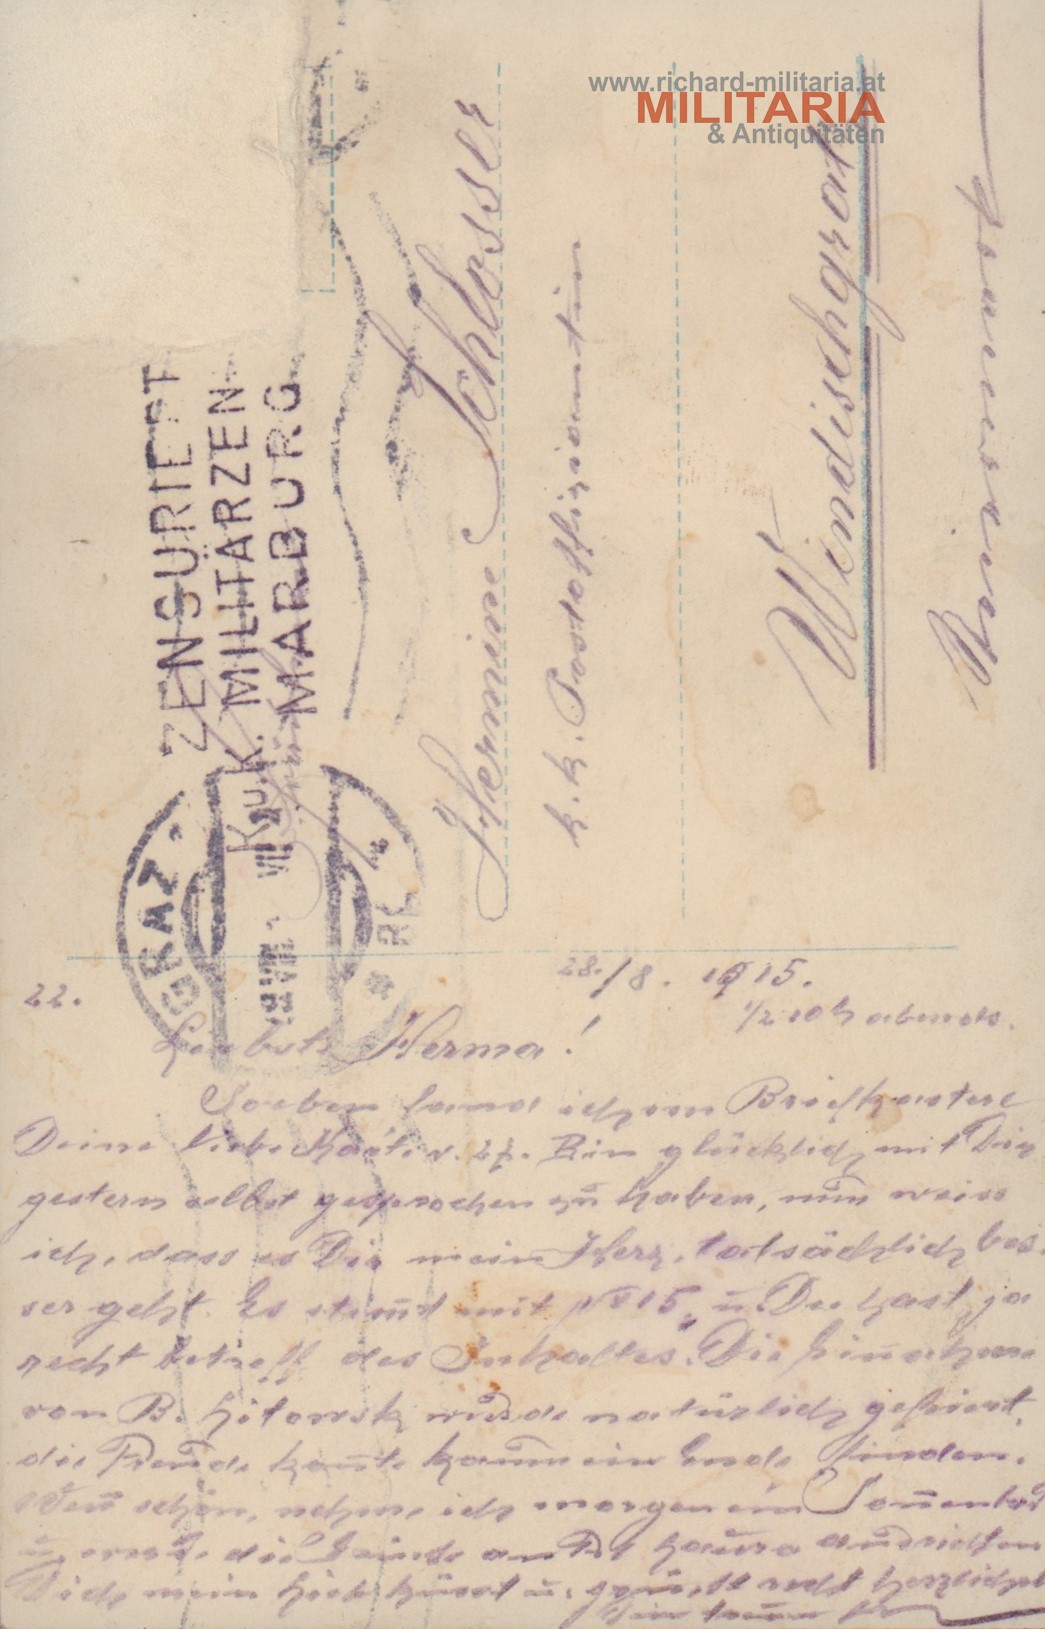 www.richard-militaria.at
MILITARIA
& Antiquitäten
ZENSURIERT
K.u.K. MILITÄRZEN
MARBURG
GRAZ
Hermine Schlosser
k. k. Postoffiziantin
Windischgraz
Steiermark
22.
28./8. 1915.
1/2 10 h abends.
Liebste Herma!
Soeben fand ich im Briefkasten
Deine liebe Karte v. 27. Bin glücklich mit Dir
gestern selbst gesprochen zu haben, nun weiss
ich, dass es Dir mein Herz, tatsächlich bes-
ser geht. Es stimmt mit № 15, u. Du hast ja
recht betreff des Inhaltes. Die Einnahme
von B. Litowsk wurde natürlich gefeiert,
die Freude konnte kaum ein Ende finden.
Wenn schön, nehme ich morgen ein Sonnenbad
u. die Gründe am
Dich mein Lieb küsst u. grüsst recht herzlichst
Dein treuer